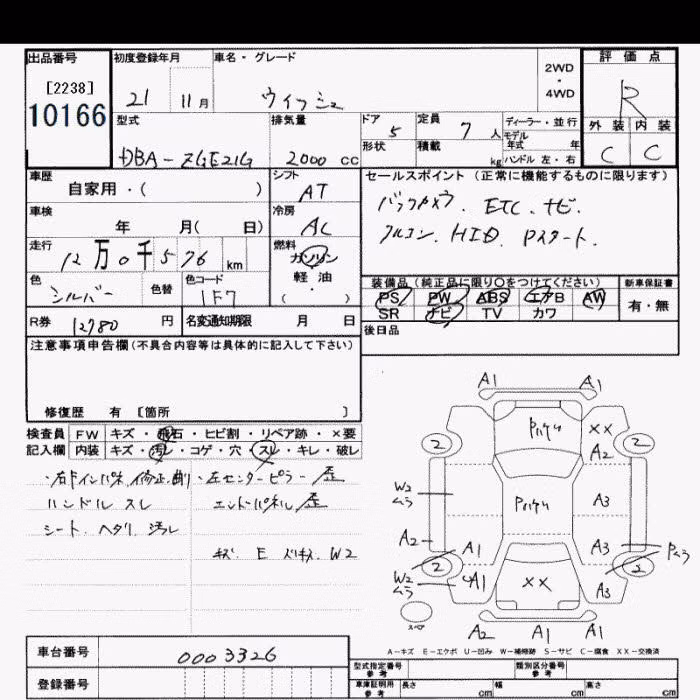 出品番号
[2238]
10166
初度登録年月
21 11月
車名・グレード
ウィッシュ
2WD
・
4WD
評価点
R
外装 内装
C C
型式
DBA-ZGE21G
排気量
2000 cc
ドア
5
形状
定員
7 人
積載
kg
ディーラー・並行
モデル
年式 年
ハンドル 左・右
車歴
自家用・( )
シフト
AT
車検
年 月( 日)
冷房
AC
走行
12万0千576 km
燃料
ガソリン
軽油
・
( )
色
シルバー
色替
色コード
1F7
R券 12780 円
名変通知期限 月 日
セールスポイント (正常に機能するものに限ります)
バックカメラ. ETC. ナビ.
フルコン. HID. Pスタート.
装備品(純正品に限り○をつけてください)
PS PW ABS エアB AW
SR ナビ TV カワ
新車保証書
有・無
後日品
注意事項申告欄(不具合内容等は具体的に記入して下さい)
修復歴 有 [箇所 ]
検査員 FW キズ・飛石・ヒビ割・リペア跡・×要
記入欄 内装 キズ・汚レ・コゲ・穴・スレ・キレ・破レ
・右ドインパネ修正.削
・左センターピラー歪
ハンドル スレ
エンドパネル歪
シート. ヘタリ 汚レ
キズ. E W2
A1 A1
パハクリ XX
2 2
A2
W2
ムラ
パハクリ
A3
A2 A1 A3 Pムラ
2 2
W2
ムラ
A1 XX A3
スペア
A2 A1 A1
A-キズ E-エクボ U-凹み W-補修跡 S-サビ C-腐食 XX-交換済
車台番号 0003326
登録番号
型式指定番号
参考
類別区分番号
参考
車庫証明用
参考
長さ cm 幅 cm 高さ cm